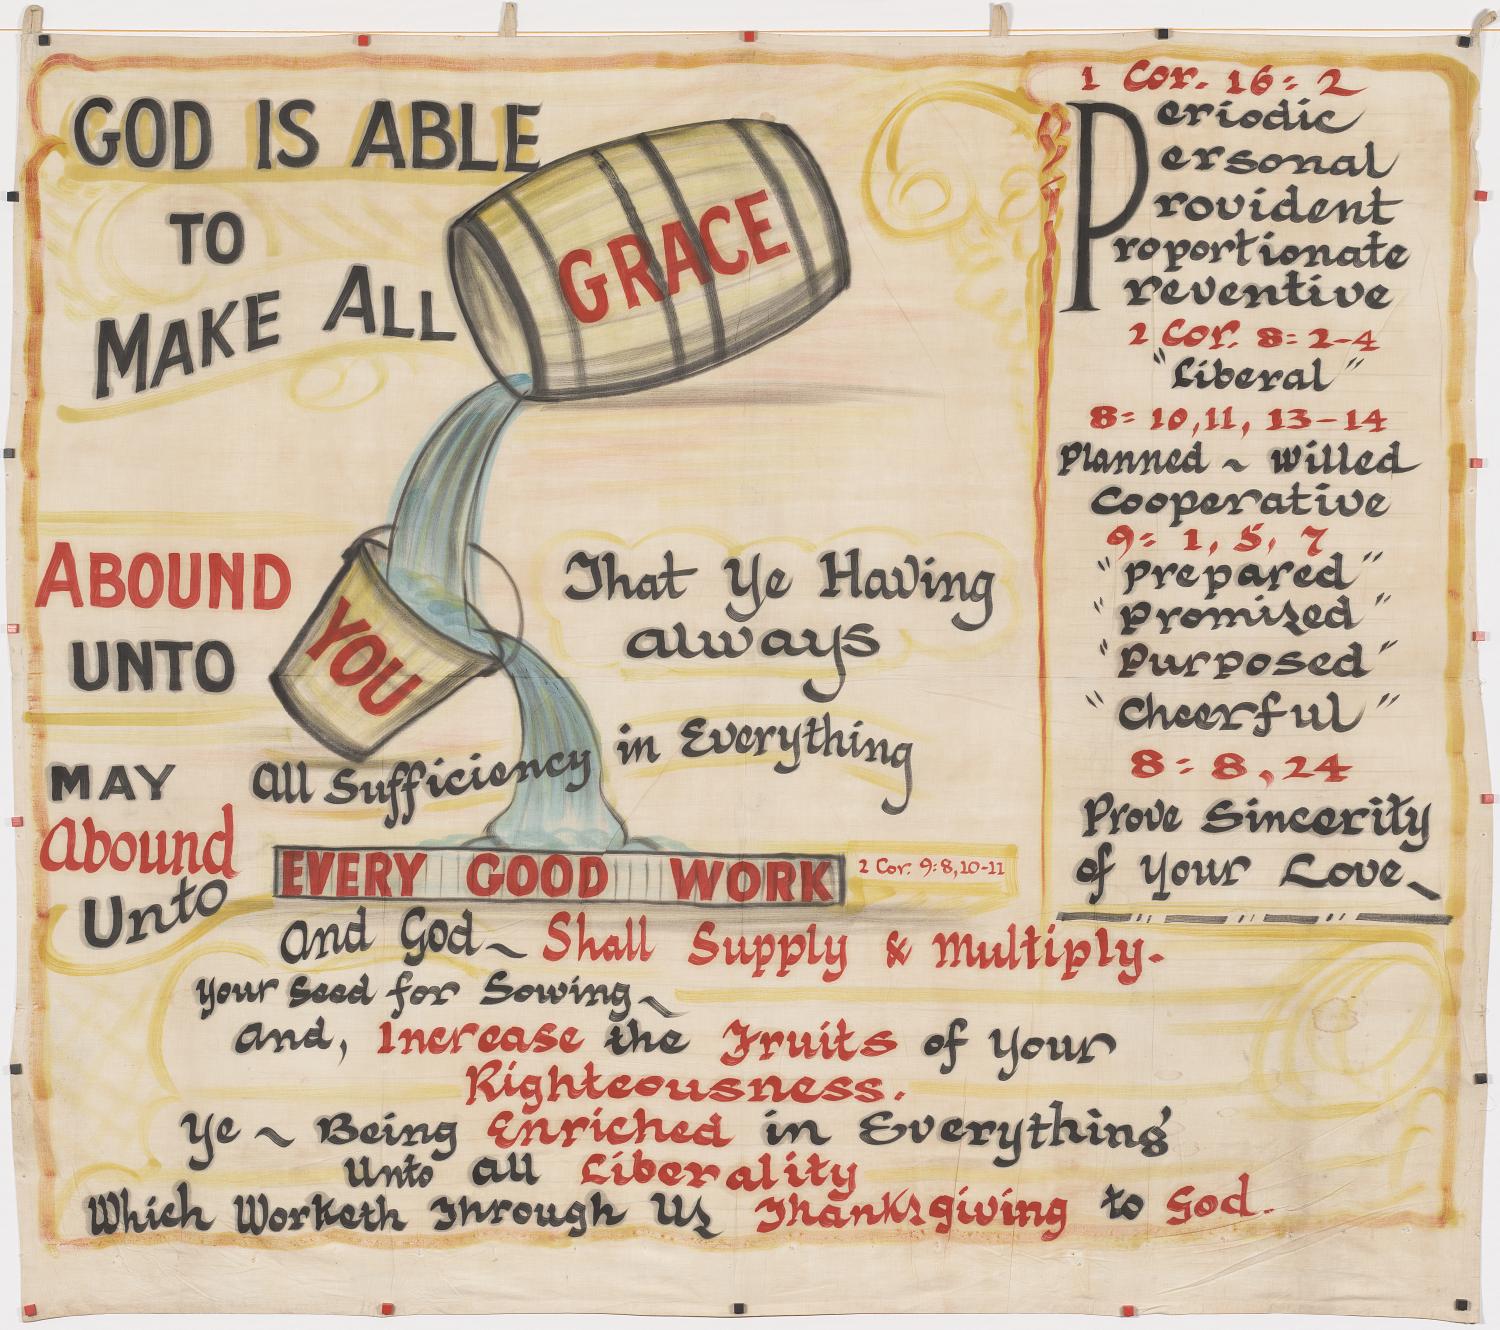 GOD IS ABLE
TO
MAKE ALL
GRACE
ABOUND
UNTO
YOU
That Ye Having
always
All Sufficiency in Everything
MAY
Abound
Unto
EVERY GOOD WORK
2 Cor. 9:8,10-11
And God ~ Shall Supply & Multiply.
Your Seed for Sowing ~
and, Increase the Fruits of Your
Righteousness.
Ye ~ Being Enriched in Everything
Unto all Liberality
Which Worketh Through Us Thanksgiving to God.
1 Cor. 16:2
Periodic
ersonal
rovident
roportionate
reventive
2 Cor. 8:2-4
"Liberal"
8:10,11, 13-14
Planned ~ Willed
Cooperative
9:1, 5, 7
"Prepared"
"Promized"
"Purposed"
"Cheerful"
8:8,24
Prove Sincerity
of Your Love ~